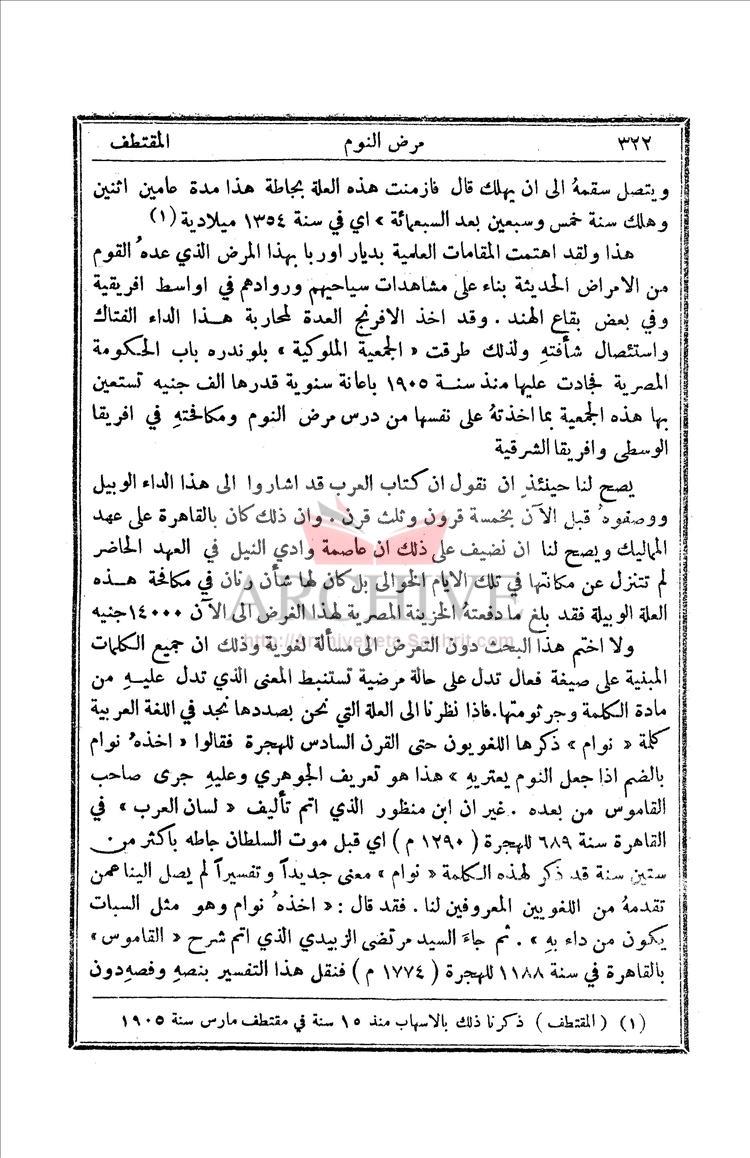 ٣٢٢ مرض النوم المقتطف
ويتصل سقمهُ الى ان يهلك قال فازمنت هذه العلة بجاطة هذا مدة عامين اثنين
وهلك سنة خمس وسبعين بعد السبعمائة » اي في سنة ١٣٥٤ ميلادية (١)
هذا ولقد اهتمت المقامات العلمية بديار اوربا بهذا المرض الذي عدهُ القوم
من الامراض الحديثة بناء على مشاهدات سياحيهم وروادهم في اواسط افريقية
وفي بعض بقاع الهند . وقد اخذ الافرنج العدة لمحاربة هذا الداء الفتاك
واستئصال شأفتهِ ولذلك طرقت « الجمعية الملوكية » بلوندره باب الحكومة
المصرية فجادت عليها منذ سنة ١٩٠٥ باعانة سنوية قدرها الف جنيه تستعين
بها هذه الجمعية بما اخذتهُ على نفسها من درس مرض النوم ومكافحتهِ في افريقا
الوسطى وافريقا الشرقية
يصح لنا حينئذٍ ان نقول ان كتاب العرب قد اشاروا الى هذا الداء الوبيل
ووصفوهُ قبل الآن بخمسة قرون وثلث قرن . وان ذلك كان بالقاهرة على عهد
المماليك ويصح لنا ان نضيف على ذلك ان عاصمة وادي النيل في العهد الحاضر
لم تتنزل عن مكانتها في تلك الايام الخوالى بل كان لها شأن وثان في مكافحة هذه
العلة الوبيلة فقد بلغ ما دفعتهُ الخزينة المصرية لهذا الغرض الى الآن ١٤٠٠٠ جنيه
ولا اختم هذا البحث دون التعرض الى مسألة لغوية وذلك ان جميع الكلمات
المبنية على صيغة فعال تدل على حالة مرضية تستنبط المعنى الذي تدل عليهِ من
مادة الكلمة وجرثومتها. فاذا نظرنا الى العلة التي نحن بصددها نجد في اللغة العربية
كلمة « نوام » ذكرها اللغويون حتى القرن السادس للهجرة فقالوا « اخذهُ نوام
بالضم اذا جعل النوم يعتريهِ » هذا هو تعريف الجوهري وعليهِ جرى صاحب
القاموس من بعده . غير ان ابن منظور الذي اتم تأليف « لسان العرب » في
القاهرة سنة ٦٨٩ للهجرة ( ١٢٩٠ م ) اي قبل موت السلطان جاطه باكثر من
ستين سنة قد ذكر لهذه الكلمة « نوام » معنى جديداً وتفسيراً لم يصل الينا عمن
تقدمهُ من اللغويين المعروفين لنا . فقد قال : « اخذهُ نوام وهو مثل السبات
يكون من داء بهِ » . ثم جاءَ السيد مرتضى الزبيدي الذي اتم شرح « القاموس »
بالقاهرة في سنة ١١٨٨ للهجرة ( ١٧٧٤ م ) فنقل هذا التفسير بنصهِ وفصهِ دون
(١) ( المقتطف ) ذكرنا ذلك بالاسهاب منذ ١٥ سنة في مقتطف مارس سنة ١٩٠٥
ARCHIVE
http://Archivebeta.Sakhrit.com